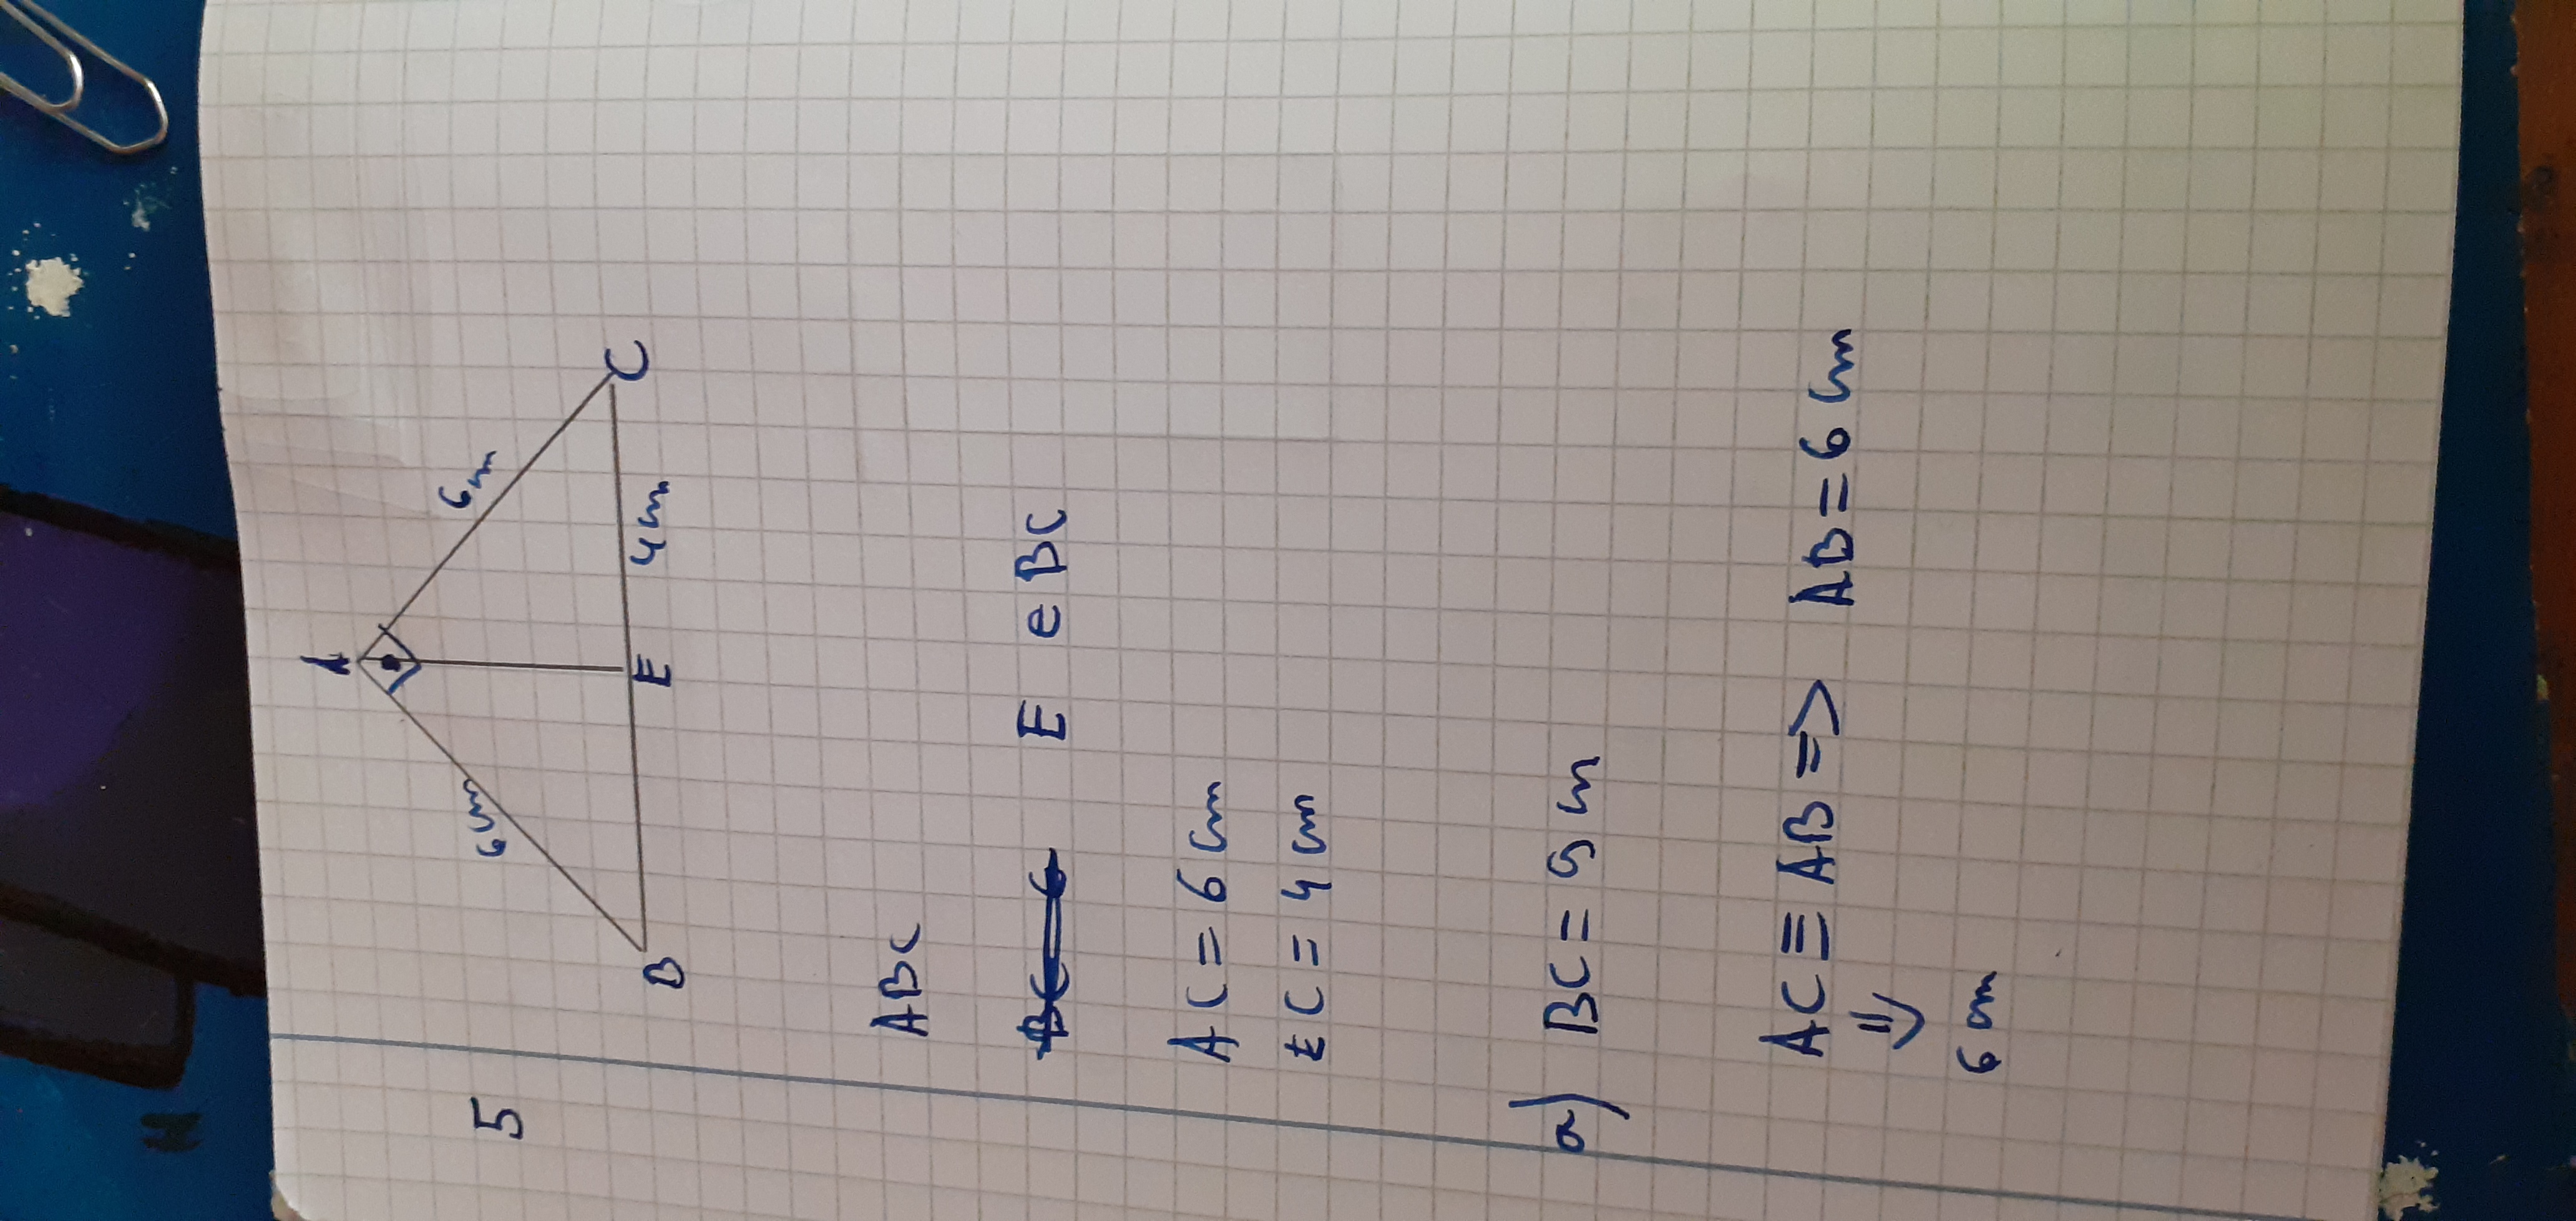 5
A
6 cm
6 m
B
E
4 cm
C
ABC
BC = 6
E e BC
AC = 6 cm
EC = 4 cm
a) BC = 9 cm
AC ≡ AB => AB = 6 cm
⇓
6 cm